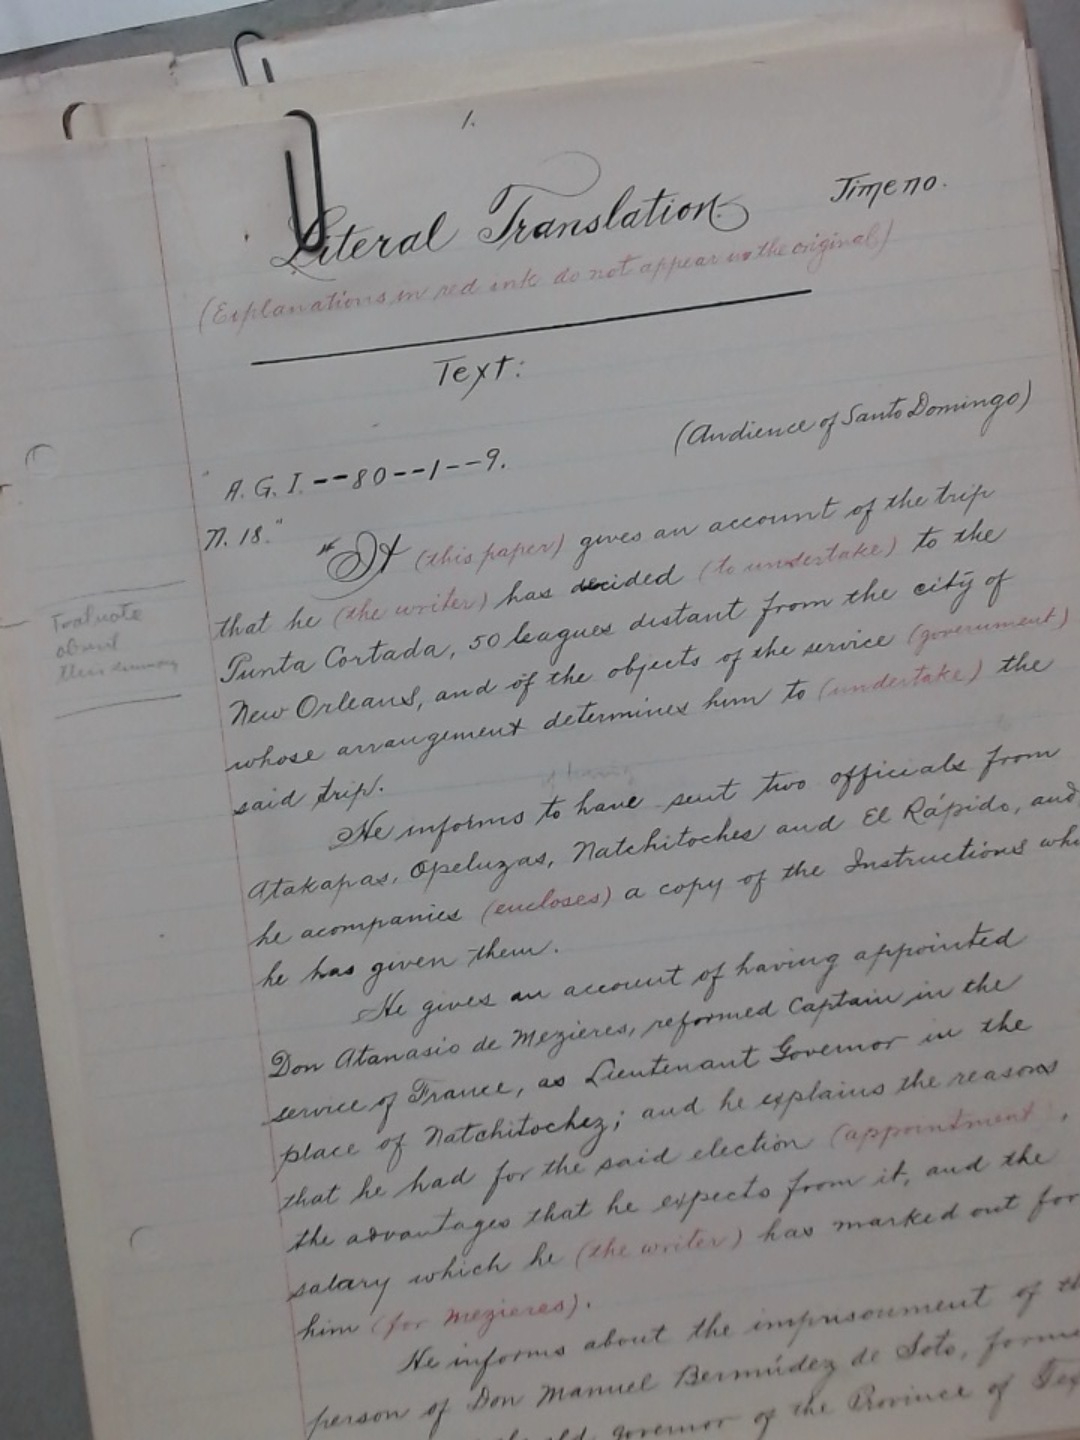 1.
Literal Translation. Jimeno.
(Explanations in red ink do not appear in the original)
Text:
(Audience of Santo Domingo)
"A. G. I. -- 80 -- 1 -- 9.
N. 18." "It (this paper) gives an account of the trip
that he (the writer) has decided (to undertake) to the
Punta Cortada, 50 leagues distant from the city of
New Orleans, and of the objects of the service (government)
whose arrangement determines him to (undertake) the
said trip.
Footnote
about
this summary
of having
He informs to have sent two officials from
Atakapas, Opeluzas, Natchitoches and El Rápido, and
he acompanies (encloses) a copy of the Instructions whi
he has given them.
He gives an account of having appointed
Don Atanasio de Mezieres, reformed Captain in the
service of France, as Lieutenant Governor in the
place of Natchitochez; and he explains the reasons
that he had for the said election (appointment),
the advantages that he expects from it, and the
salary which he (the writer) has marked out for
him (for Mezieres).
He informs about the imprisonment of th
person of Don Manuel Bermúdez de Soto, forme
governor of the Province of Tex